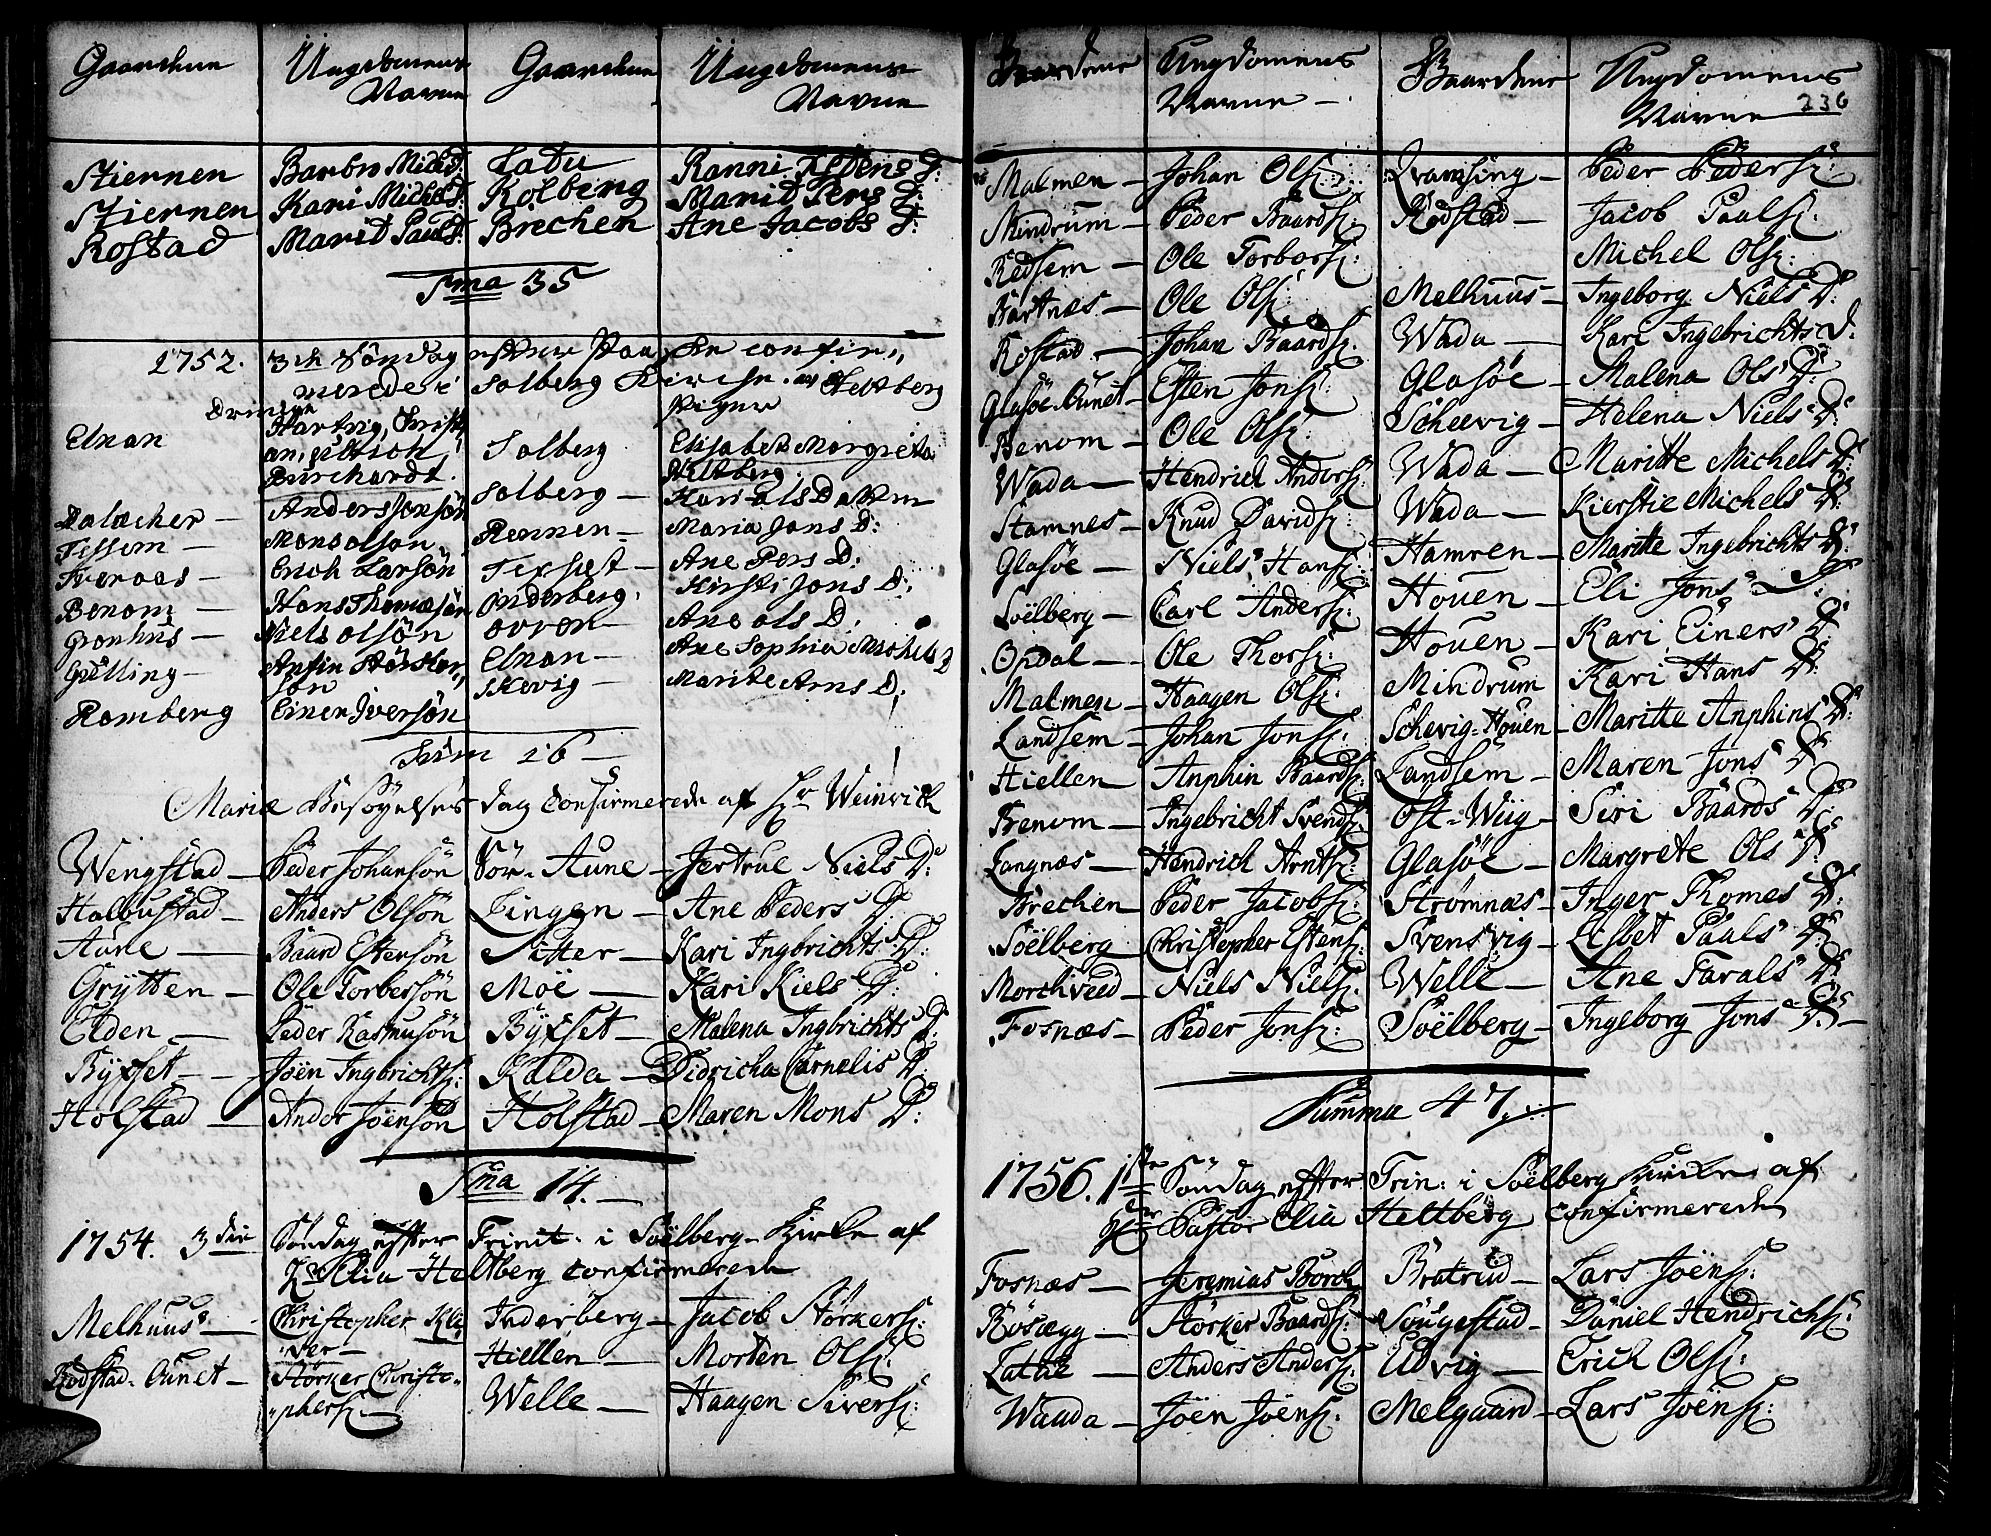 Gaardene Ungdomens Gaardene Ungdomens
Navne Navne
Stiernen Barbro Mich D: Ladu Ranni Estens D:
Stiernen Kari Michel D: Kolberg Marit Pers D:
Rostad Marit Pauls D: Brechen Ane Jacobs D:
Sma 35
1752. 3die Søndag efter Paaske confir„
merede i Solberg Kirche av Heltberg
Drenge Piger
Elnan Hartvig Christi
an, Solberg Elisabeth Margreta
Burchardt. Heltberg
Dalacher – Anders Jonsøn Solberg – Kari Ols Datter
Tessem – Mons Olson Rennen – Maria Jons D:
Tveraas – Erich Larsøn Ane Pers D:
Benom – Hans Thomæsøn Inderberg. Kirsti Jons D:
Gronhus – Niels Olsøn Ovran – Ane Ols D:
Gulling – Anfin Størker„ Elnan – Ane Sophia Michels D
søn
Romberg Einer Iversøn Skevig – Marite Arns D:
Sum 16 –
Mariæ Besøgelses dag confirmerede af Hr Weinrich
Wengstad – Peder Johansøn Sør-Aune – Jertrue Niels D:
Halbustad – Anders Olsøn Lingen – Ane Peders D:
Aune – Baard Estensøn Sitter – Kari Ingbrichts D:
Grytten – Ole Torbersøn Moe – Kari Kiels D:
Elden – Peder Rasmusøn Byxset – Malena Ingbrichts D:
Byxset – Joen Ingbrichts: Kalda – Didricha Cornelis D:
Holstad – Ander Joensøn Holstad – Maren Mons D:
Sma 14. –
1754. 3die Søndag effter Trinit. i Soelberg Kirke af
Hr Elia Heltberg confirmerede
Melhuus – Christopher Kli„ Inderberg – Jacob Størkers:
„ver – Hiellen – Morten Ols:
Rodstad-Aunet – Størker Christo„ Welle – Haagen Sivers:
„phers: –
Gaardene Ungdomens Gaardene Ungdomens
Navne – Navne 236
Malmen – Johan Ols: Qvamsing – Peder Peders:
Mindrum – Peder Baards: Rodstad – Jacob Paals:
Redsem – Ole Torbors: Michel Ols:
Hartnæs – Ole Ols: Melhuus – Ingeborg Niels D:
Rostad – Johan Baards: Wada – Kari Ingebrichts D:
Glasöe Aunet – Esten Jons: Glasöe – Malena Ols D:
Benom – Ole Ols: Scheevig – Helena Niels D:
Wada – Hendrich Anders: Wada – Maritte Michels D:
Stamnes – Knud Davids: Wada – Kierstie Michels D:
Glasöe – Niels Hans: Hamren – Maritte Ingebrichts D:
Soelberg – Carl Anders: Houen – Eli Jons D:
Opdal – Ole Thors: Houen – Kari Einers D:
Malmen – Haagen Ols: Mindrum Kari Hans D:
Landsem – Johan Jons: Schevig-Houen – Maritte Anphins D:
Hiellen – Anphin Baards: Landsem – Maren Jons D:
Benom – Ingebricht Svends: Ost-Wiig – Siri Baards D:
Langnæs – Hendrich Arnts: Glasöe – Margrete Ols D:
Brechen – Peder Jacobs: Strømnæs – Inger Thomes D:
Soelberg Christopher Estens: Svensvig – Lisbet Paals D:
Morchveed – Niels Niels: Welle – Ane Farals D:
Fosnæs – Peder Jons: Soelberg – Ingeborg Jons D: –
Summa 47.
1756. 1ste Søndag effter Trin: i Soelberg Kirke af
Hr Pastor Elia Heltberg confirmerede
Fosnæs – Jeremias Borch Bratrud – Lars Joens:
Rösægg – Størker Baards: Sougestad – Daniel Hendrichs:
Lathe – Anders Anders: Udvig – Erich Ols:
Waada – Joen Joens: Melgaard – Lars Joens: